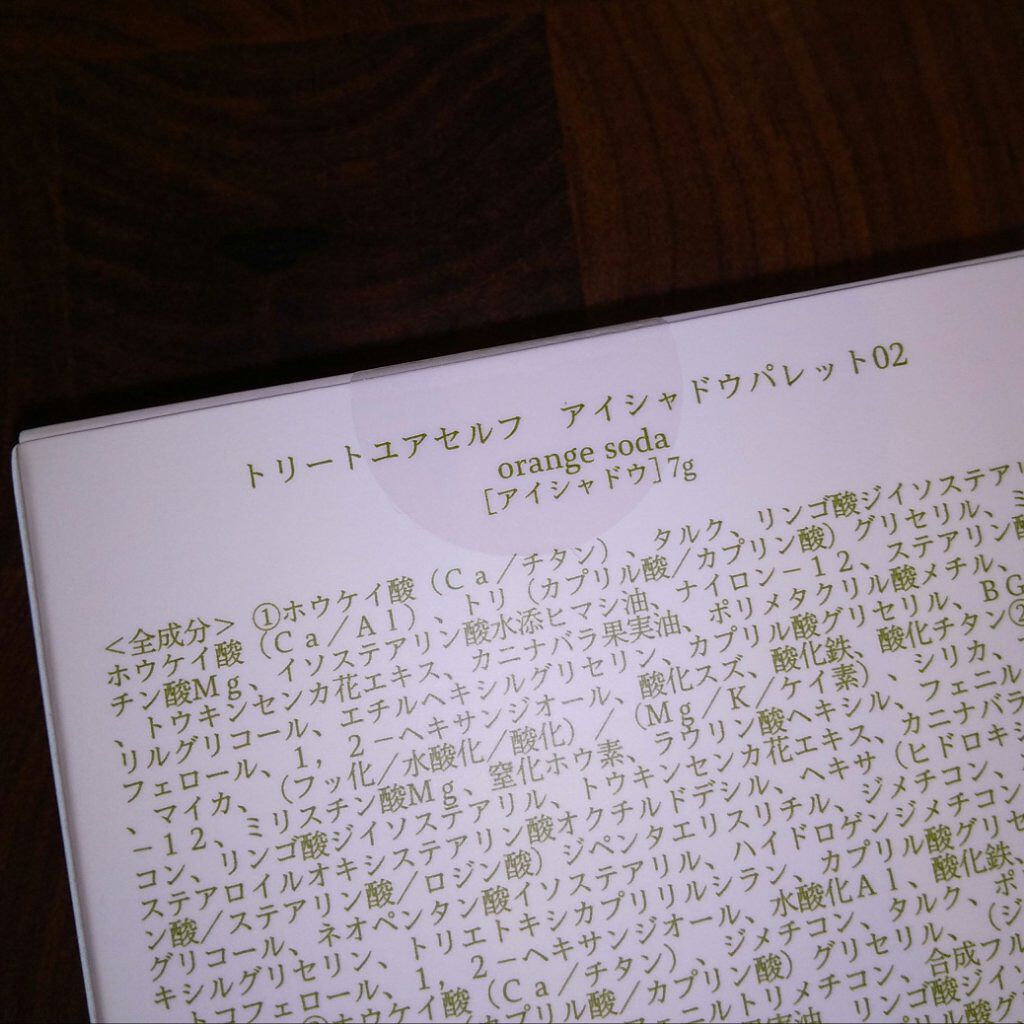 トリートユアセルフ アイシャドウパレット02
orange soda
[アイシャドウ]7g
<全成分> ①ホウケイ酸(Ca/チタン)、タルク、リンゴ酸ジイソステアリ
ホウケイ酸(Ca/Al)、トリ(カプリル酸/カプリン酸)グリセリル、ミ
チン酸Mg、イソステアリン酸水添ヒマシ油、ナイロン-12、ステアリン酸
、トウキンセンカ花エキス、カニナバラ果実油、ポリメタクリル酸メチル、
リルグリコール、エチルヘキシルグリセリン、カプリル酸グリセリル、BG
フェロール、1,2-ヘキサンジオール、酸化スズ、酸化鉄、酸化チタン②
、マイカ、(フッ化/水酸化/酸化)/(Mg/K/ケイ素)、シリカ、
-12、ミリスチン酸Mg、窒化ホウ素、ラウリン酸ヘキシル、フェニル
コン、リンゴ酸ジイソステアリル、トウキンセンカ花エキス、カニナバラ
ステアロイルオキシステアリン酸オクチルドデシル、ヘキサ(ヒドロキシ
ン酸/ステアリン酸/ロジン酸)ジペンタエリスリチル、ジメチコン、
グリコール、ネオペンタン酸イソステアリル、ハイドロゲンジメチコン、
キシルグリセリン、トリエトキシカプリリルシラン、カプリル酸グリセ
トコフェロール、1,2-ヘキサンジオール、水酸化Al、酸化鉄、
ホウケイ酸(Ca/チタン)、ジメチコン、タルク、ポ
プリル酸/カプリン酸)グリセリル、(ジ
フェニルトリメチコン、合成フル
リンゴ酸ジイ